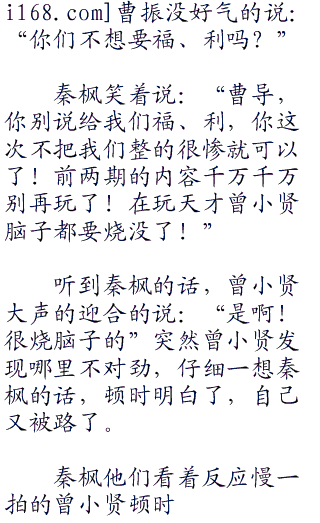 i168.com]曹振没好气的说:
“你们不想要福、利吗？”
秦枫笑着说: “曹导，
你别说给我们福、利，你这
次不把我们整的很惨就可以
了！前两期的内容千万千万
别再玩了！在玩天才曾小贤
脑子都要烧没了！”
听到秦枫的话，曾小贤
大声的迎合的说: “是啊！
很烧脑子的”突然曾小贤发
现哪里不对劲，仔细一想秦
枫的话，顿时明白了，自己
又被路了。
秦枫他们看着反应慢一
拍的曾小贤顿时